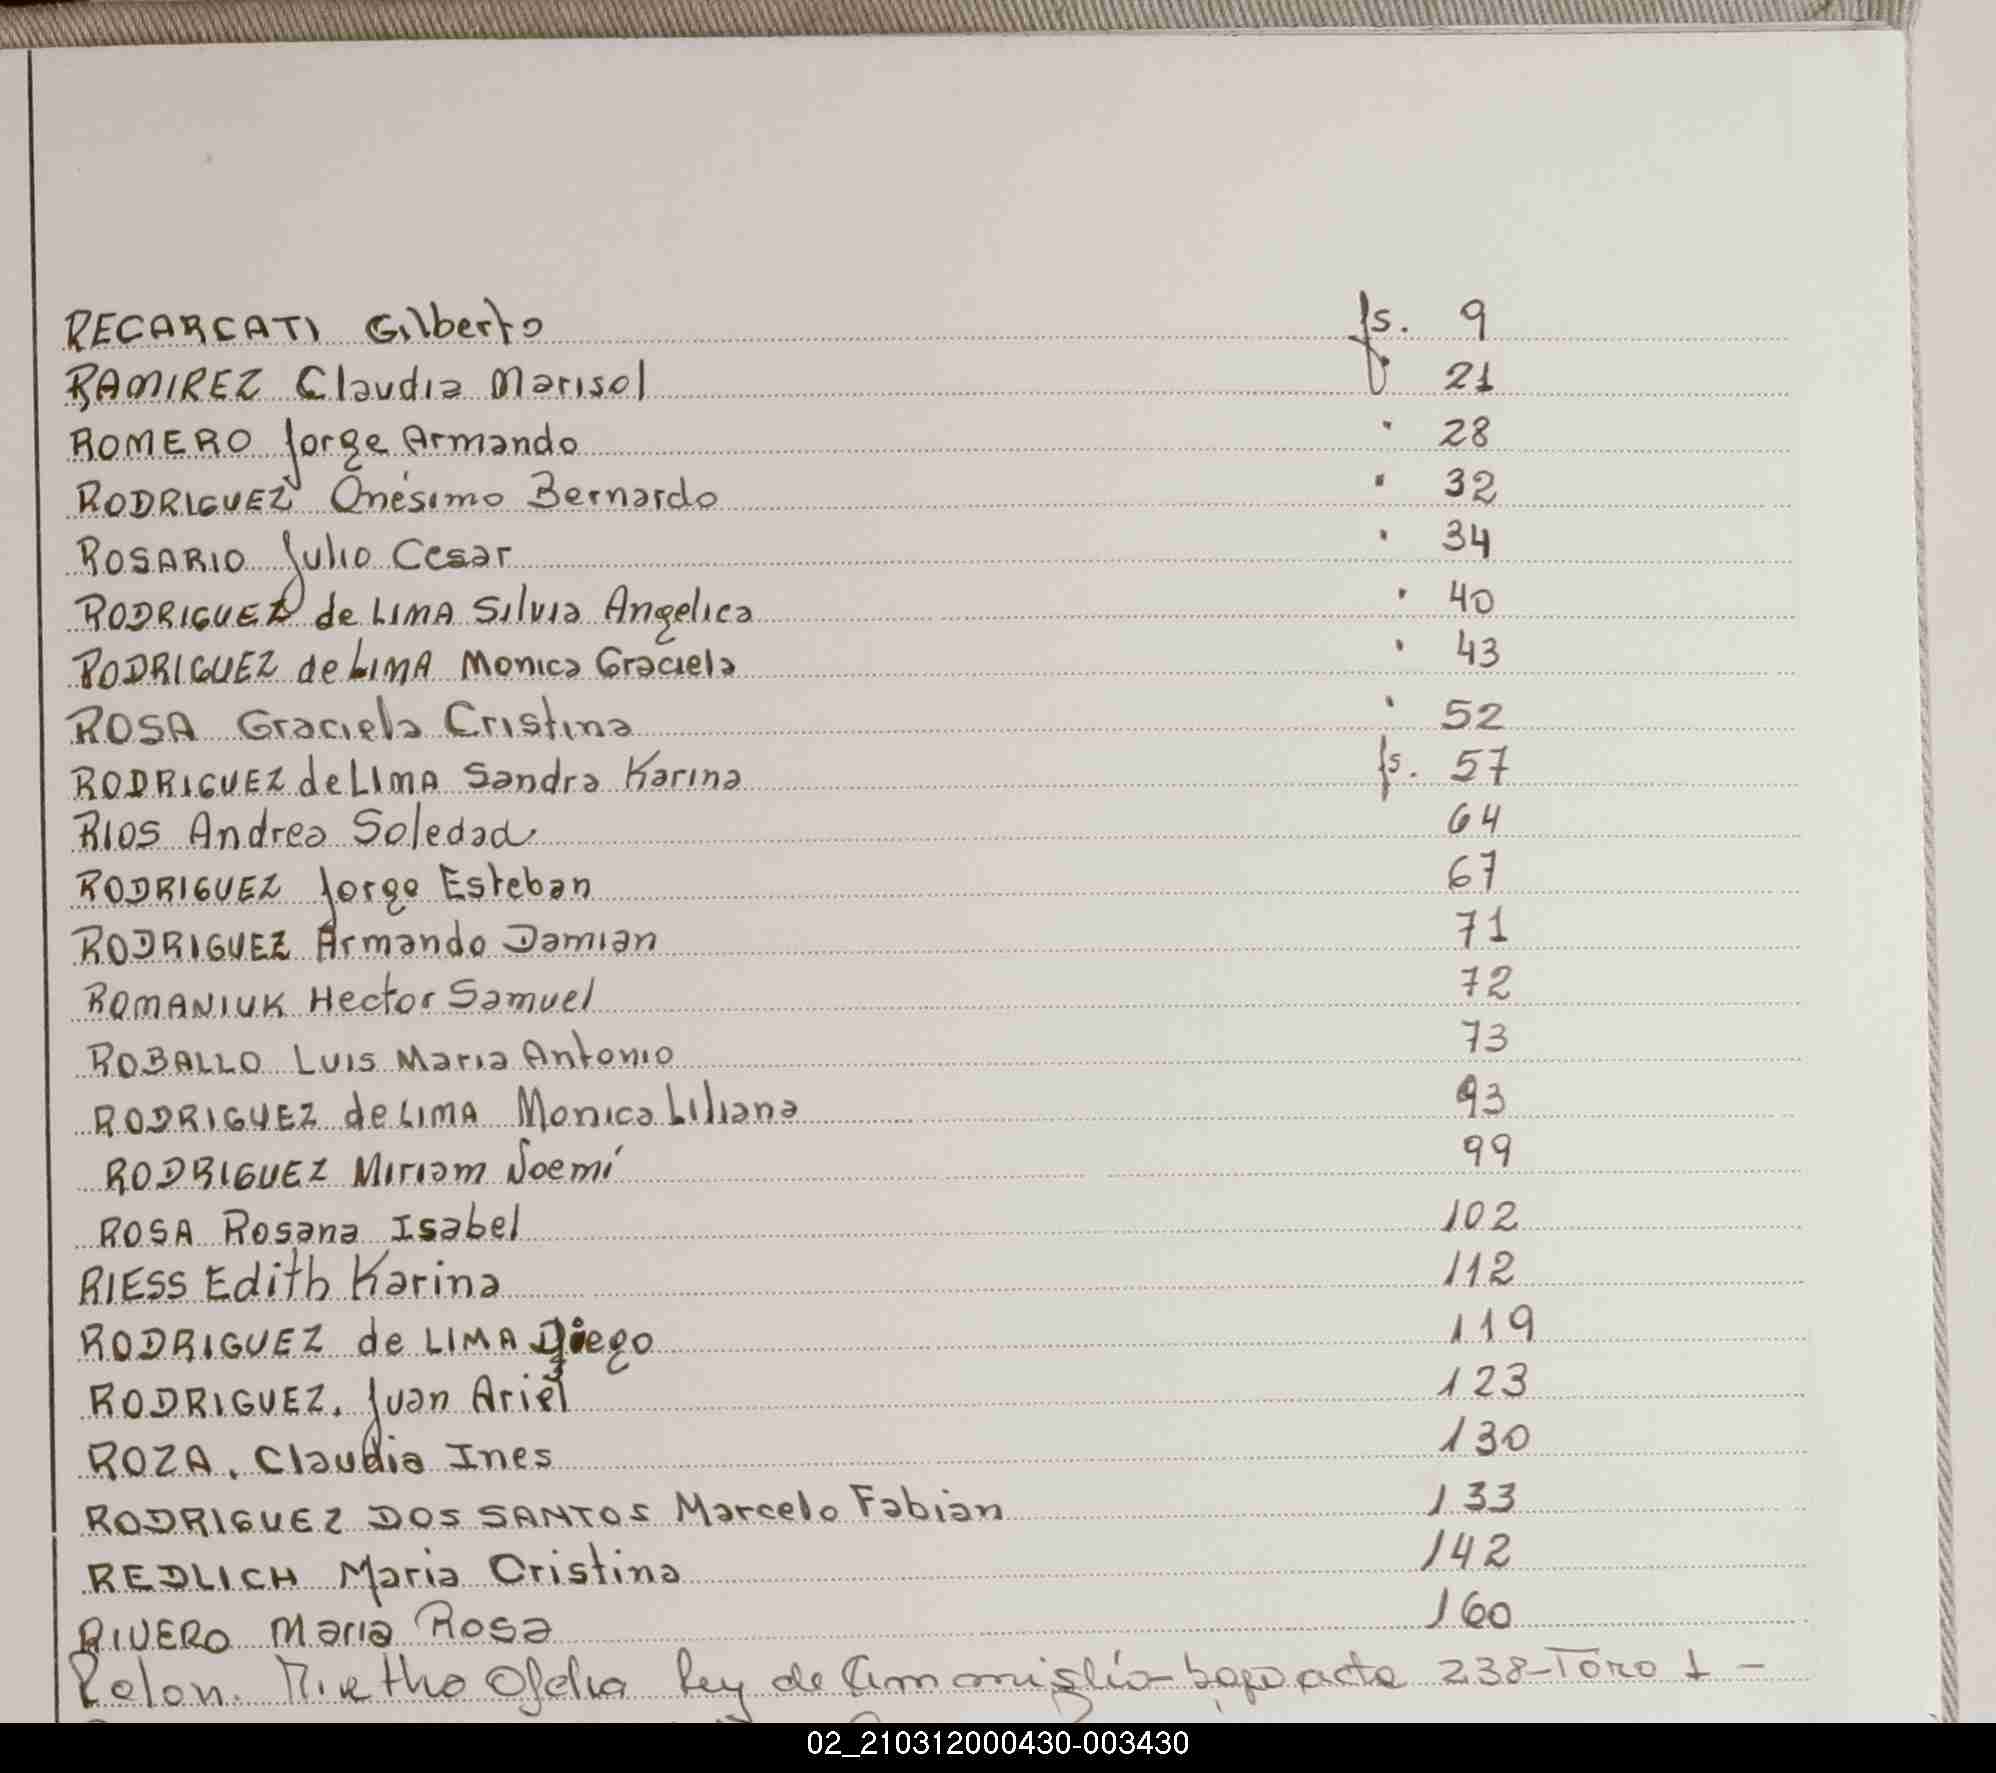 RECARCATI Gilberto fs. 9
RAMIREZ Claudia Marisol 21
ROMERO Jorge Armando " 28
RODRIGUEZ Onésimo Bernardo " 32
ROSARIO Julio Cesar " 34
RODRIGUEZ de LIMA Silvia Angelica " 40
RODRIGUEZ de LIMA Monica Graciela " 43
ROSA Graciela Cristina " 52
RODRIGUEZ de LIMA Sandra Karina fs. 57
RIOS Andrea Soledad 64
RODRIGUEZ Jorge Esteban 67
RODRIGUEZ Armando Damian 71
ROMANIUK Hector Samuel 72
ROBALLO Luis Maria Antonio 73
RODRIGUEZ de LIMA Monica Liliana 93
RODRIGUEZ Miriam Noemí 99
ROSA Rosana Isabel 102
RIESS Edith Karina 112
RODRIGUEZ de LIMA Diego 119
RODRIGUEZ. Juan Ariel 123
ROZA. Claudia Ines 130
RODRIGUEZ DOS SANTOS Marcelo Fabian 133
REDLICH Maria Cristina 142
RIVERO Maria Rosa 160
Rolon. Ofelia Ley de acta 238-Tomo 1 -
02_210312000430-003430